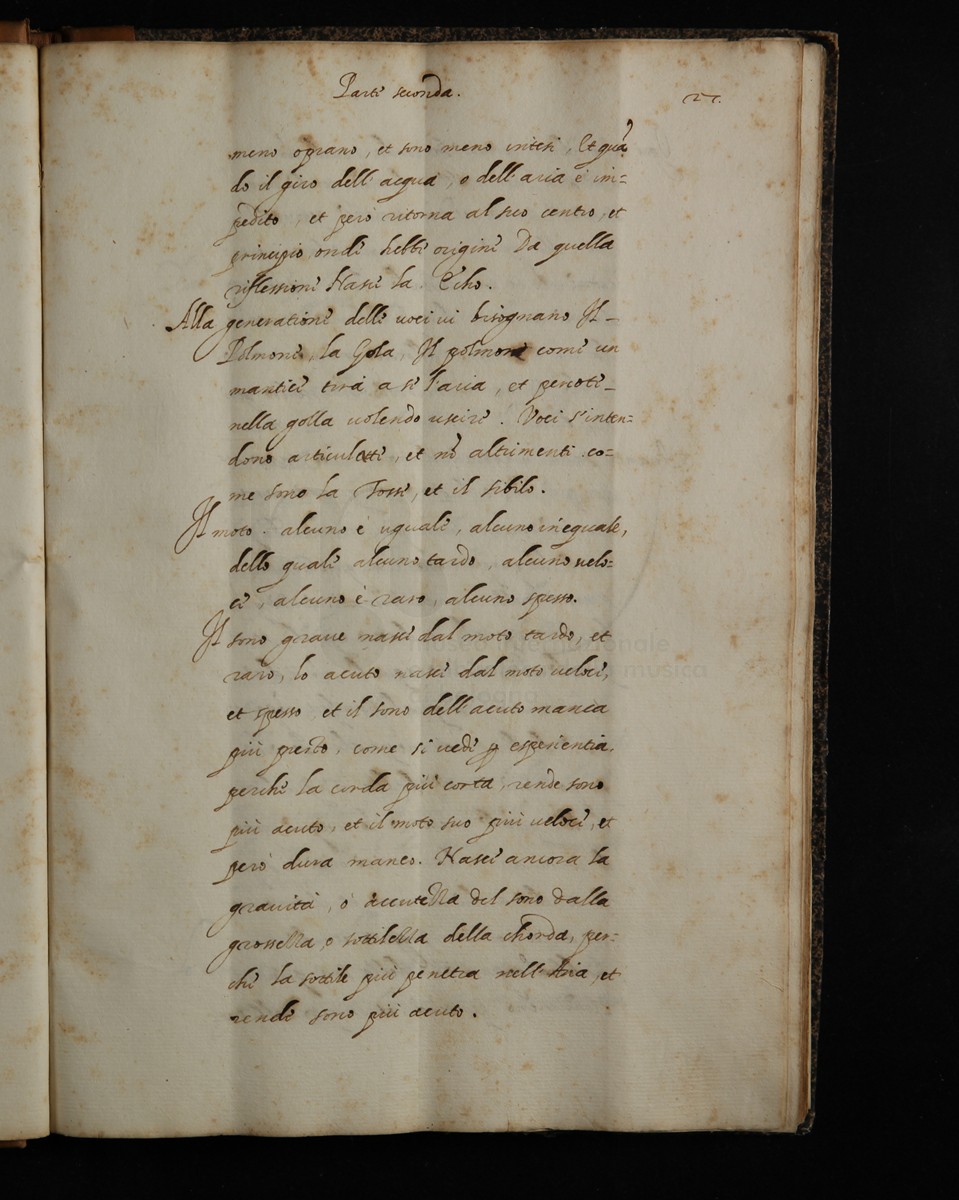 Parte seconda.
27.
meno operano, et sono meno intesi, Et quã
do il giro dell'acqua, o dell'aria è im=
pedito, et però ritorna al suo centro, et
principio onde hebbe origine Da quella
riflessione Nasce la Echo.
Alla generatione delle uoci ui bisognano Il
Polmone, la Gola, Il polmone come un
mantice tira a se l'aria, et percote
nella golla uolendo uscire. Voci s'inten=
dono articulate, et nõ altrimenti co=
me sono la Tosse, et il sibilo.
Il moto alcuno è uguale, alcuno ineguale,
delle quali alcuno tardo, alcuno uelo=
ce, alcuno è raro, alcuno spesso.
Il sono graue nasce dal moto tardo, et
raro, lo acuto nasce dal moto ueloce,
et spesso, et il sono dell'acuto manca
più presto, come si uede p esperientia,
perche la corda più corta, rende sono
più acuto, et il moto suo più ueloce, et
però dura manco. Nasce ancora la
grauità, o accutezza del sono dalla
grossezza, o sottilezza della chorda, per=
che la sottile più penetra nell'Aria, et
rende sono più acuto.